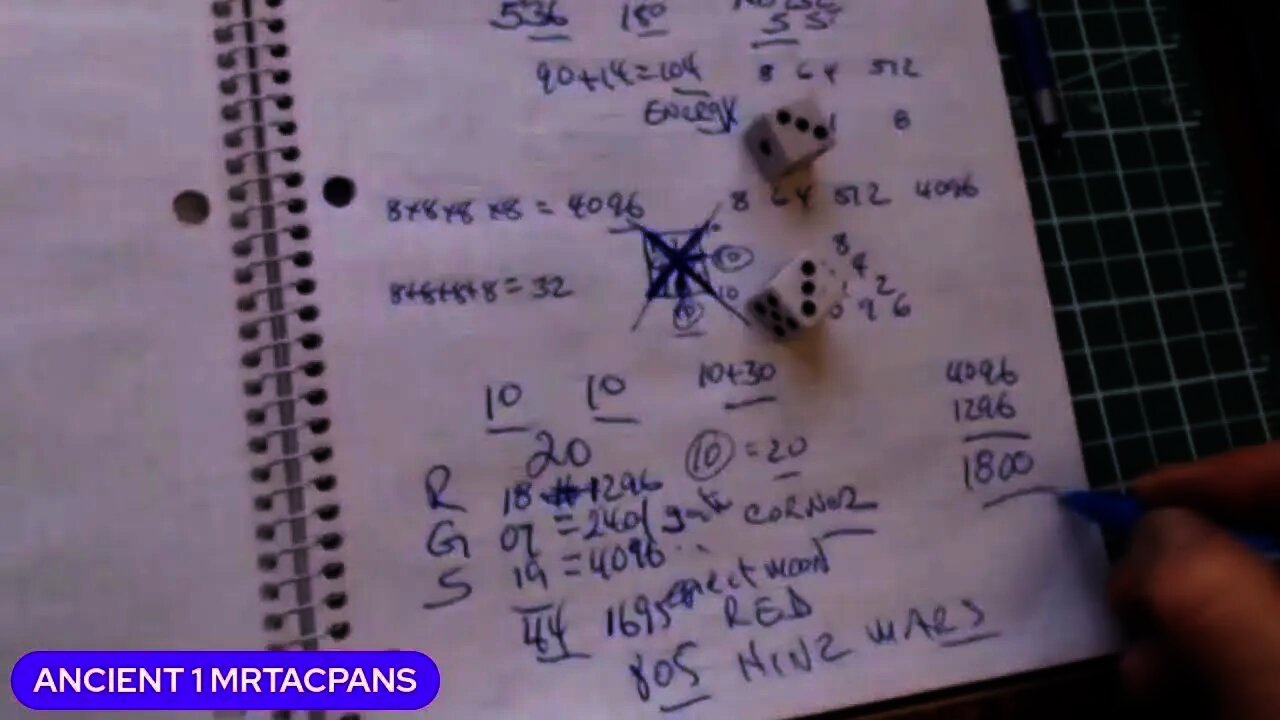 536 180
5 5
90+14=104 8 64 512
ENERGY 1 8
8×8×8×8 = 4096 8 64 512 4096
8+8+8+8=32
10
10
8
4
2
0 9 6
10 10 10+30
20 10 = 20
4096
1296
1800
R 18 1296
G 07 = 2401 CORNOR
S 19 = 4096
44 1695 moon
RED
805 MARS
ANCIENT 1 MRTACPANS